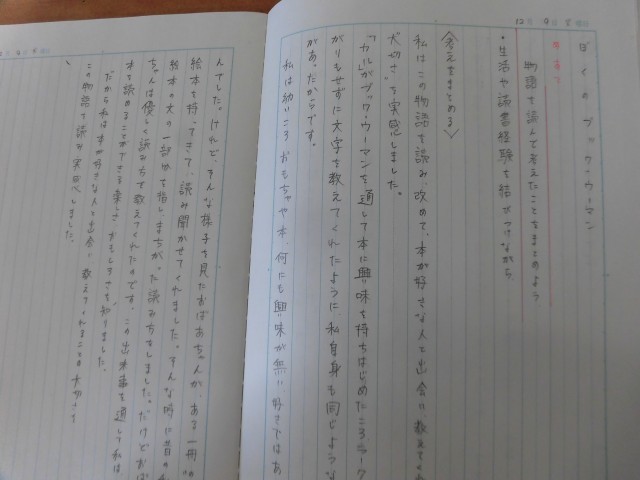 12 9
ぼくのブック・ウーマン
めあて
物語を読んで考えたことをまとめよう
・生活や読書経験を結びつけながら
〈考えをまとめる〉
私はこの物語を読み、改めて、本が好きな人と出会い、教えてくれ
大切さを実感しました。
「カル」がブック・ウーマンを通して本に興味を持ちはじめたころラーク
がりもせずに文字を教えてくれたように、私自身も同じような
があったからです。
私は幼いころ、おもちゃや本、何にも興味が無い 好きではあ
んでした。けれど、そんな様子を見たおばあちゃんが、ある一冊の
絵本を持ってきて、読み聞かせてくれました。そんな時に昔の私
絵本の文の一部分を指し、まちがった読み方をしました。だけどおば
ちゃんは優しく読み方を教えてくれたのです。この出来事を通して私は
本を読めることができる楽しさ、おもしろさを知りました。
だから私は本が好きな人と出会い、教えてくれることの大切さを
この物語を読み実感しました。